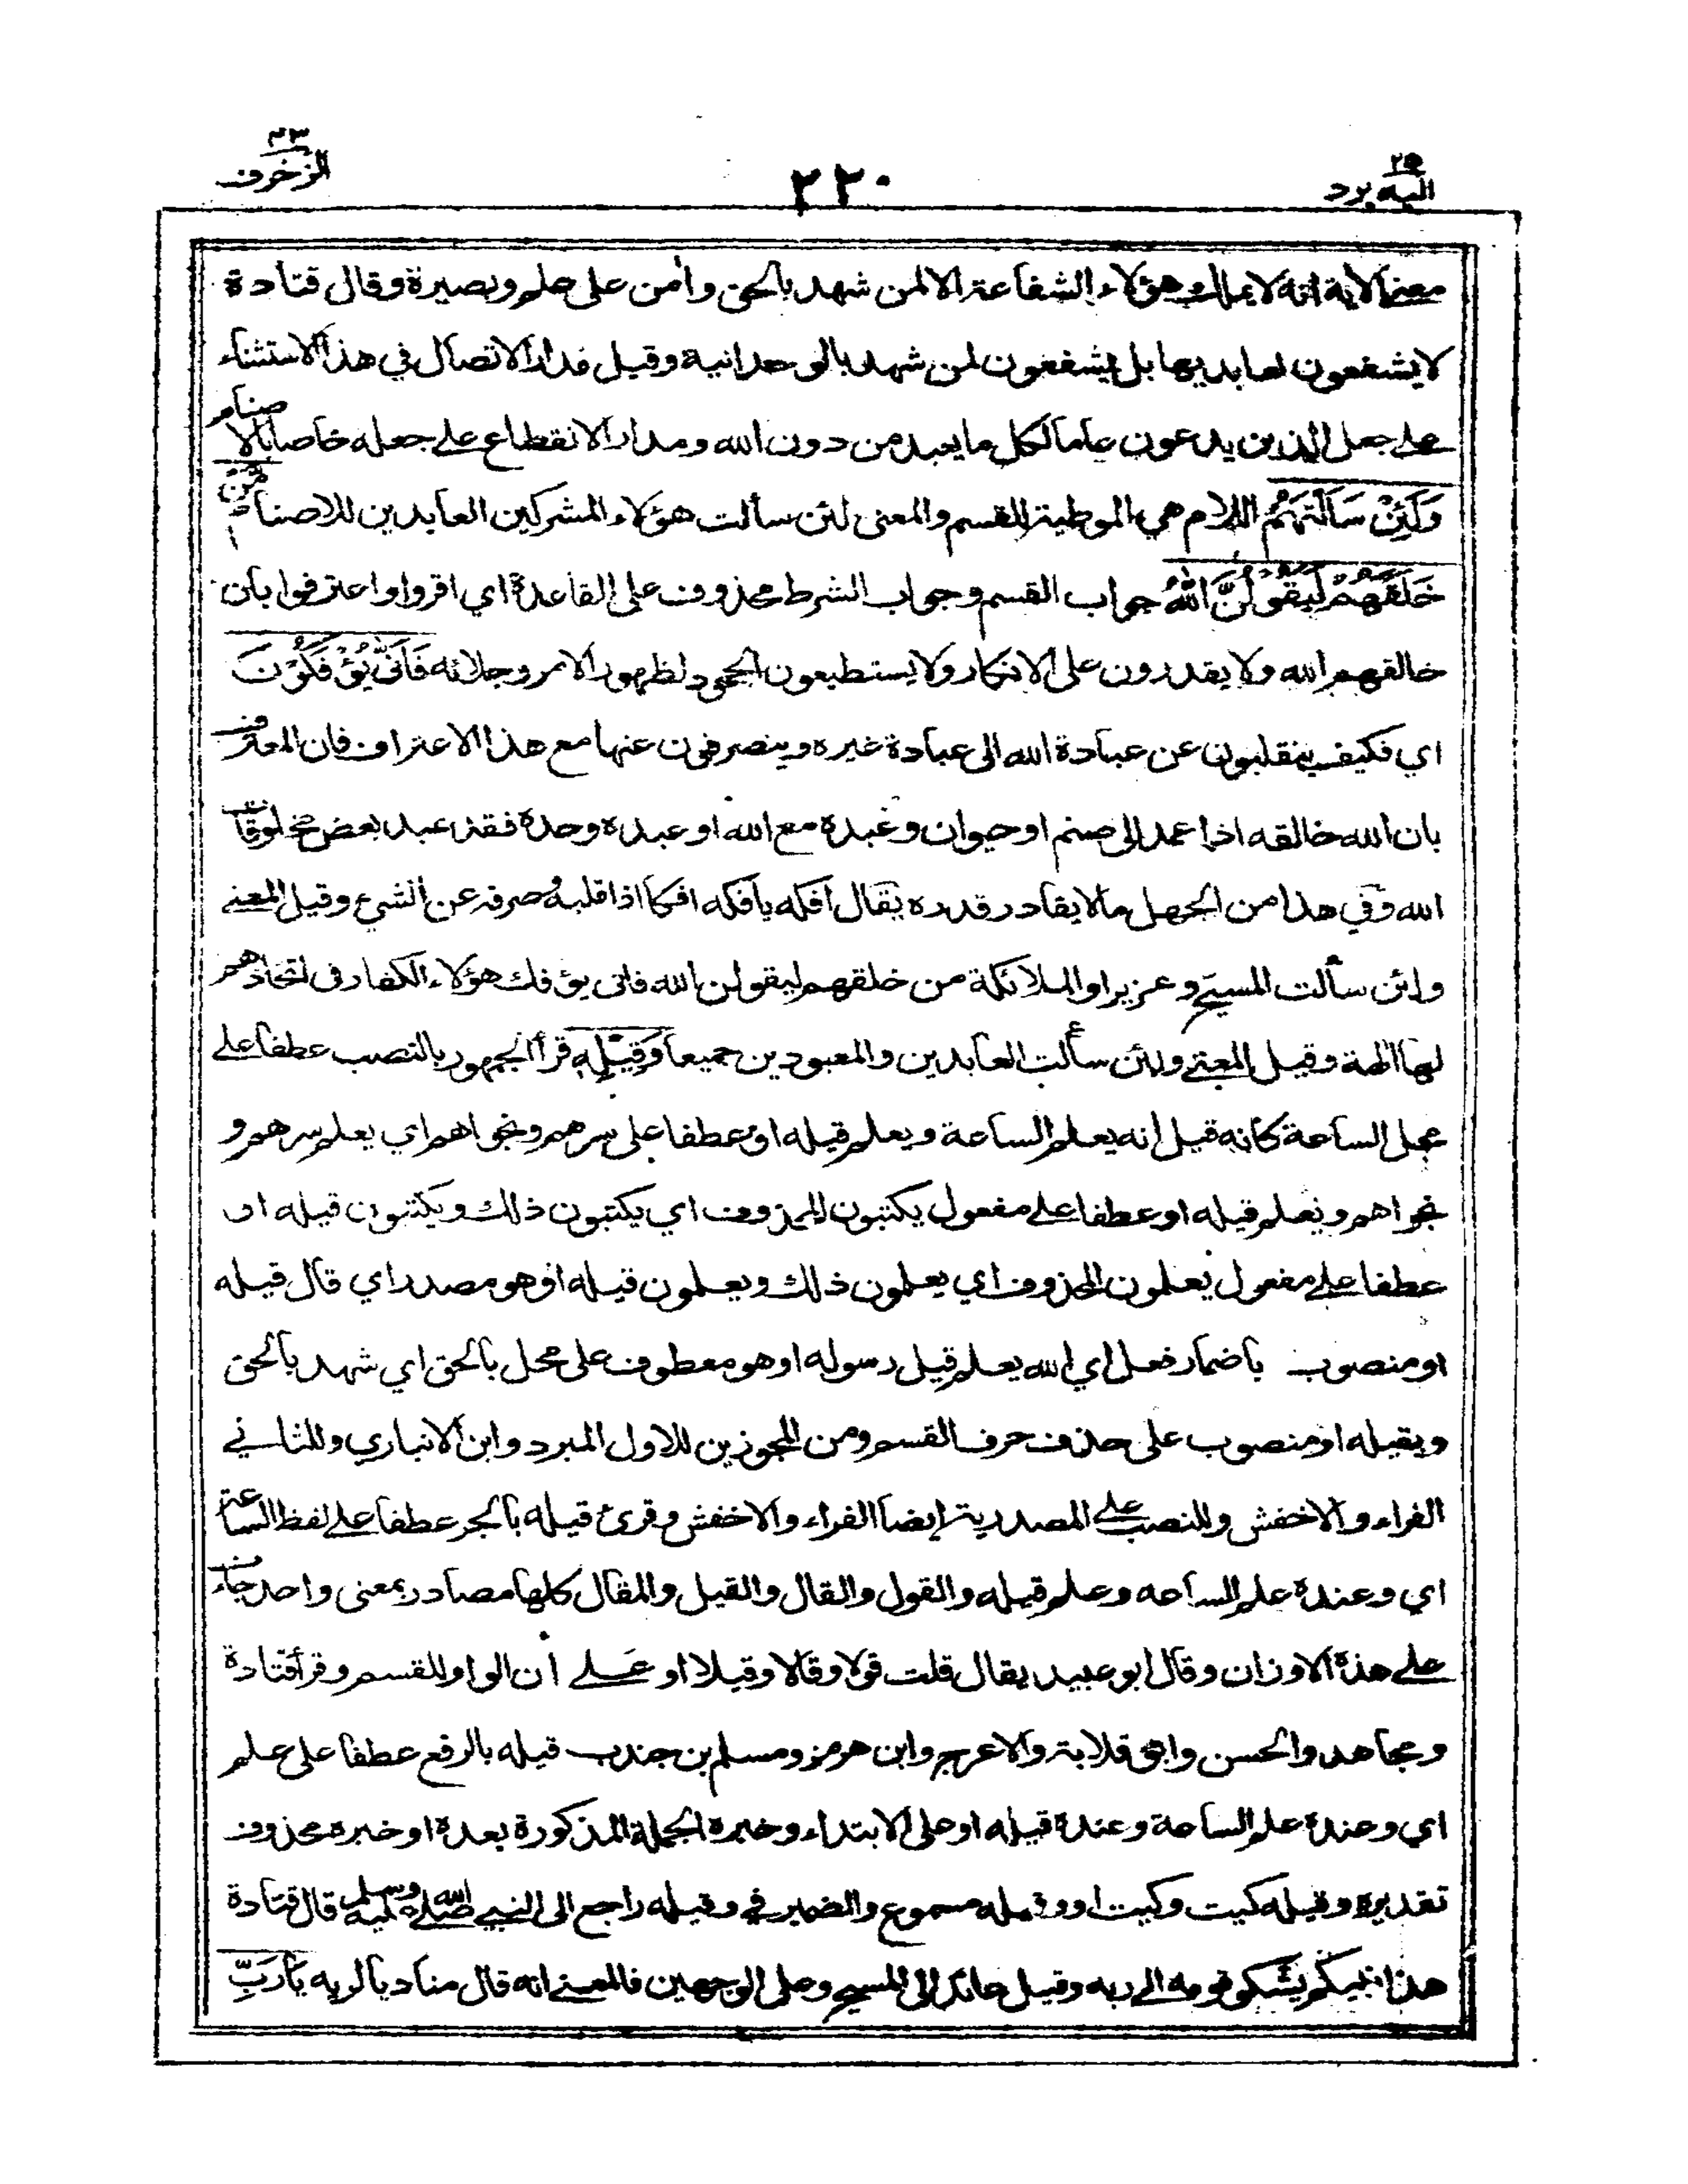 ٢٥
اليه يرد
٢٢٠
٤٣
الزخرف
معنى الاية انه لا يملك هؤلاء الشفاعة الا لمن شهد بالحق وأمن على علم وبصيرة وقال قتادة
لا يشفعون لعابديها بل يشفعون لمن شهد بالوحدانية وقيل مدار الاتصال في هذا الاستثناء
على جعل الذين يدعون عاما لكل ما يعبد من دون الله ومدار الانقطاع على جعله خاصا بالاصنام
وَلَئِنْ سَاَلْتَهُمْ اللام هي الموطية للقسم والمعنى لئن سألت هؤلاء المشركين العابدين للاصنام مَّنْ
خَلَقَهُمْ لَيَقُوْلُنَّ اللهُ جواب القسم وجواب الشرط محذوف على القاعدة اي اقروا واعترفوا بان
خالقهم الله ولا يقدرون على الانكار ولا يستطيعون الجحود لظهور الامر وجلائه فَاَنّٰى يُؤْفَكُوْنَ
اي فكيف ينقلبون عن عبادة الله الى عبادة غيره وينصرفون عنها مع هذا الاعتراف فان المعترف
بان الله خالقه اذا عمد الى صنم او حيوان وعبده مع الله او عبده وحده فقد عبد بعض مخلوقات
الله وفي هذا من الجهل ما لا يقادر قدره يقال افكه يافكه افكا اذا قلبه وصرفه عن الشيء وقيل المعنى
ولئن سألت المسيح وعزيرا والملائكة من خلقهم ليقولن الله فانى يؤفك هؤلاء الكفار في اتخاذهم
لها الهة وقيل المعنى ولئن سألت العابدين والمعبودين جميعا وَقِيْلِهٖ قرأ الجمهور بالنصب عطفا على
محل الساعة كانه قيل انه يعلم الساعة ويعلم قيله او عطفا على سرهم ونجواهم اي يعلم سرهم و
نجواهم ويعلم قيله او عطفا على مفعول يكتبون المحذوف اي يكتبون ذلك ويكتبون قيله او
عطفا على مفعول يعلمون المحذوف اي يعلمون ذلك ويعلمون قيله او هو مصدر اي قال قيله
او منصوب باضمار فعل اي الله يعلم قيل رسوله او هو معطوف على محل بالحق اي شهد بالحق
وبقيله او منصوب على حذف حرف القسم ومن المجوزين للاول المبرد وابن الانباري وللثاني
الفراء والاخفش وللنصب على المصدرية ايضا الفراء والاخفش وقرئ قيله بالجر عطفا على لفظ الساعة
اي وعنده علم الساعه وعلم قيله والقول والقال والقيل والمقال كلها مصادر بمعنى واحد جاءت
على هذه الاوزان وقال ابو عبيد يقال قلت قولا وقالا وقيلا او على ان الواو للقسم وقرأ قتادة
ومجاهد والحسن وابو قلابة والاعرج وابن هرمز ومسلم بن جندب قيله بالرفع عطفا على علم
اي وعنده علم الساعة وعنده قيله او على الابتداء وخبره الجملة المذكورة بعده او خبره محذوف
تقديره وقيله كيت وكيت او وقيله مسموع والضمير في وقيله راجع الى النبي صلى الله عليه وسلم قال قتادة
هذا نبيكم يشكو قومه الى ربه وقيل عائد الى المسيح وعلى الوجهين فالمعنى انه قال مناديا لربه يَارَبِّ